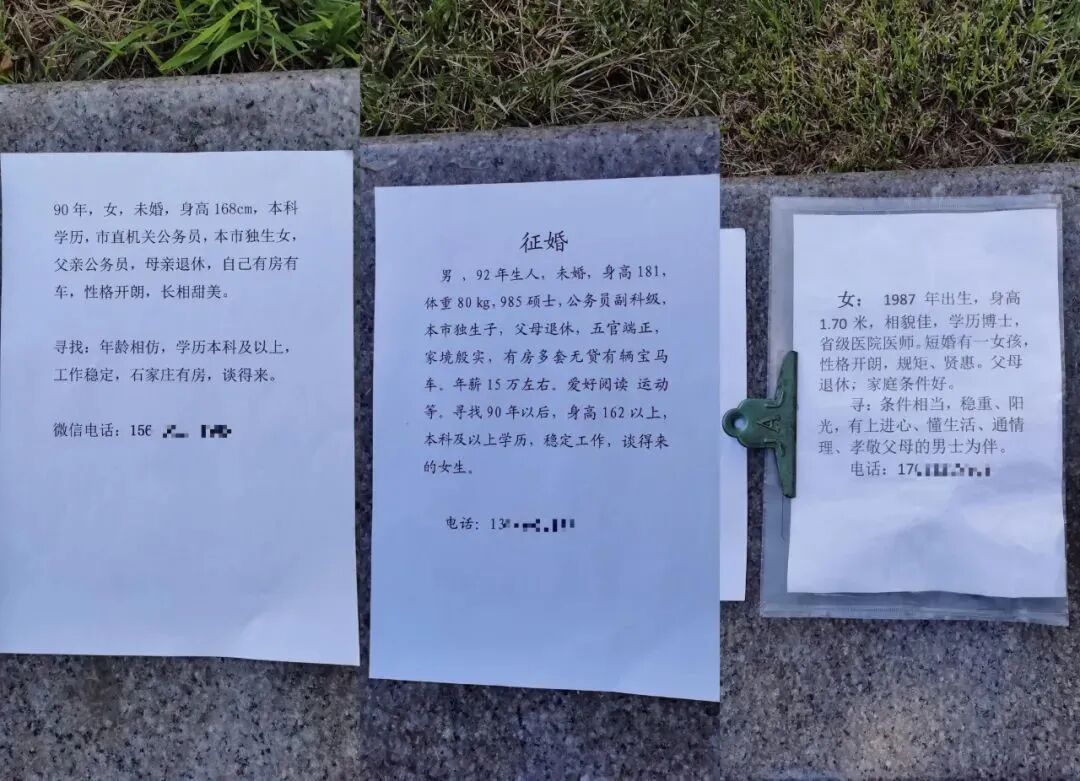 90年，女，未婚，身高168cm，本科
学历，市直机关公务员，本市独生女，
父亲公务员，母亲退休，自己有房有
车，性格开朗，长相甜美。
寻找：年龄相仿，学历本科及以上，
工作稳定，石家庄有房，谈得来。
微信电话：156
征婚
男，92年生人，未婚，身高181，
体重80kg，985硕士，公务员副科级，
本市独生子，父母退休，五官端正，
家境殷实，有房多套无贷有辆宝马
车。年薪15万左右。爱好阅读 运动
等。寻找90年以后，身高162以上，
本科及以上学历，稳定工作，谈得来
的女生。
电话：13
女： 1987 年出生，身高
1.70 米，相貌佳，学历博士，
省级医院医师。短婚有一女孩，
性格开朗，规矩、贤惠。父母
退休；家庭条件好。
寻：条件相当，稳重、阳
光，有上进心、懂生活、通情
理、孝敬父母的男士为伴。
电话：17